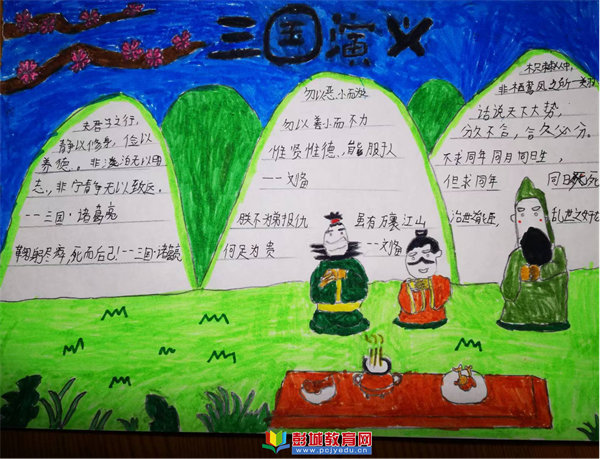 三国演义
夫君子之行,
静以修身,俭以
养德。非澹泊无以明
志,非宁静无以致远。
--三国·诸葛亮
鞠躬尽瘁,死而后已!--三国·诸葛亮
勿以恶小而为
勿以善小而不为
惟贤惟德,能服于人
--刘备
朕不为弟报仇 虽有万里江山
何足为贵 --刘备
非栖鸾凤之所
话说天下大势,
分久必合,合久必分。
不求同年同月同日生,
但求同年 同日死
治世
彭城教育网
www.pcjyedu.cn